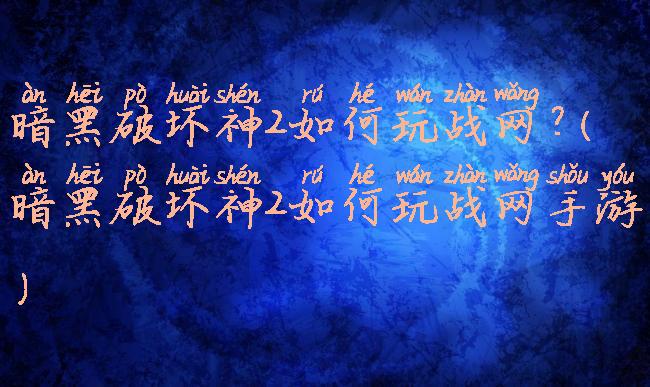 àn hēi pò huài shén rú hé wán zhàn wǎng
暗黑破坏神2如何玩战网？(
àn hēi pò huài shén rú hé wán zhàn wǎng shǒu yóu
暗黑破坏神2如何玩战网手游
)